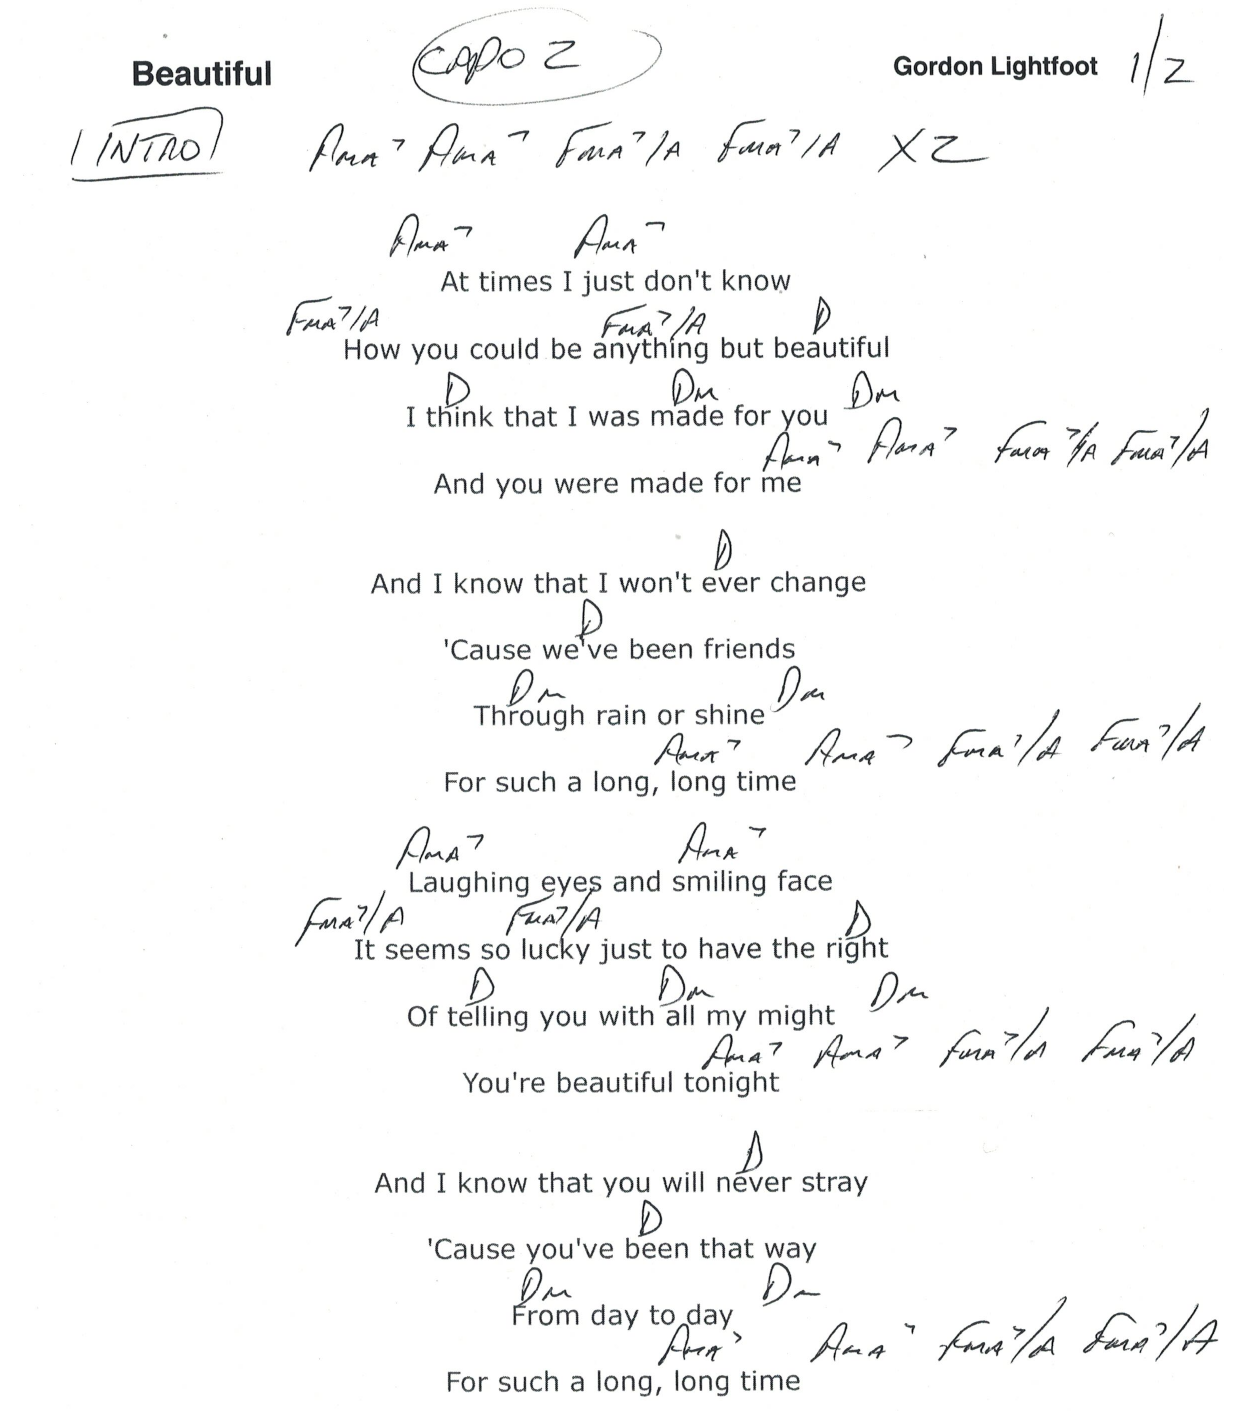 Beautiful CAPO 2 Gordon Lightfoot 1/2
INTRO AMA7 AMA7 FMA7/A FMA7/A X2
AMA7 AMA7
At times I just don't know
FMA7/A FMA7/A D
How you could be anything but beautiful
D Dm Dm
I think that I was made for you
AMA7 AMA7 FMA7/A FMA7/A
And you were made for me
D
And I know that I won't ever change
D
'Cause we've been friends
Dm Dm
Through rain or shine
AMA7 AMA7 FMA7/A FMA7/A
For such a long, long time
AMA7 AMA7
Laughing eyes and smiling face
FMA7/A FMA7/A D
It seems so lucky just to have the right
D Dm Dm
Of telling you with all my might
AMA7 AMA7 FMA7/A FMA7/A
You're beautiful tonight
D
And I know that you will never stray
D
'Cause you've been that way
Dm Dm
From day to day
AMA7 AMA7 FMA7/A FMA7/A
For such a long, long time